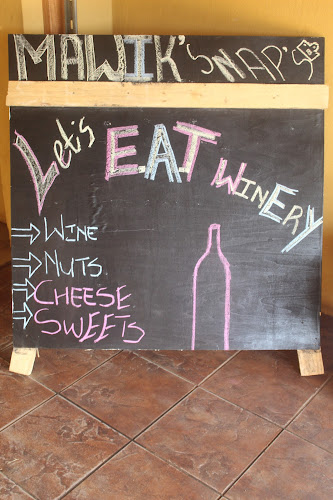 MAWIK'S NAP'S
Let's EAT WINERY
WINE
NUTS
CHEESE
SWEETS